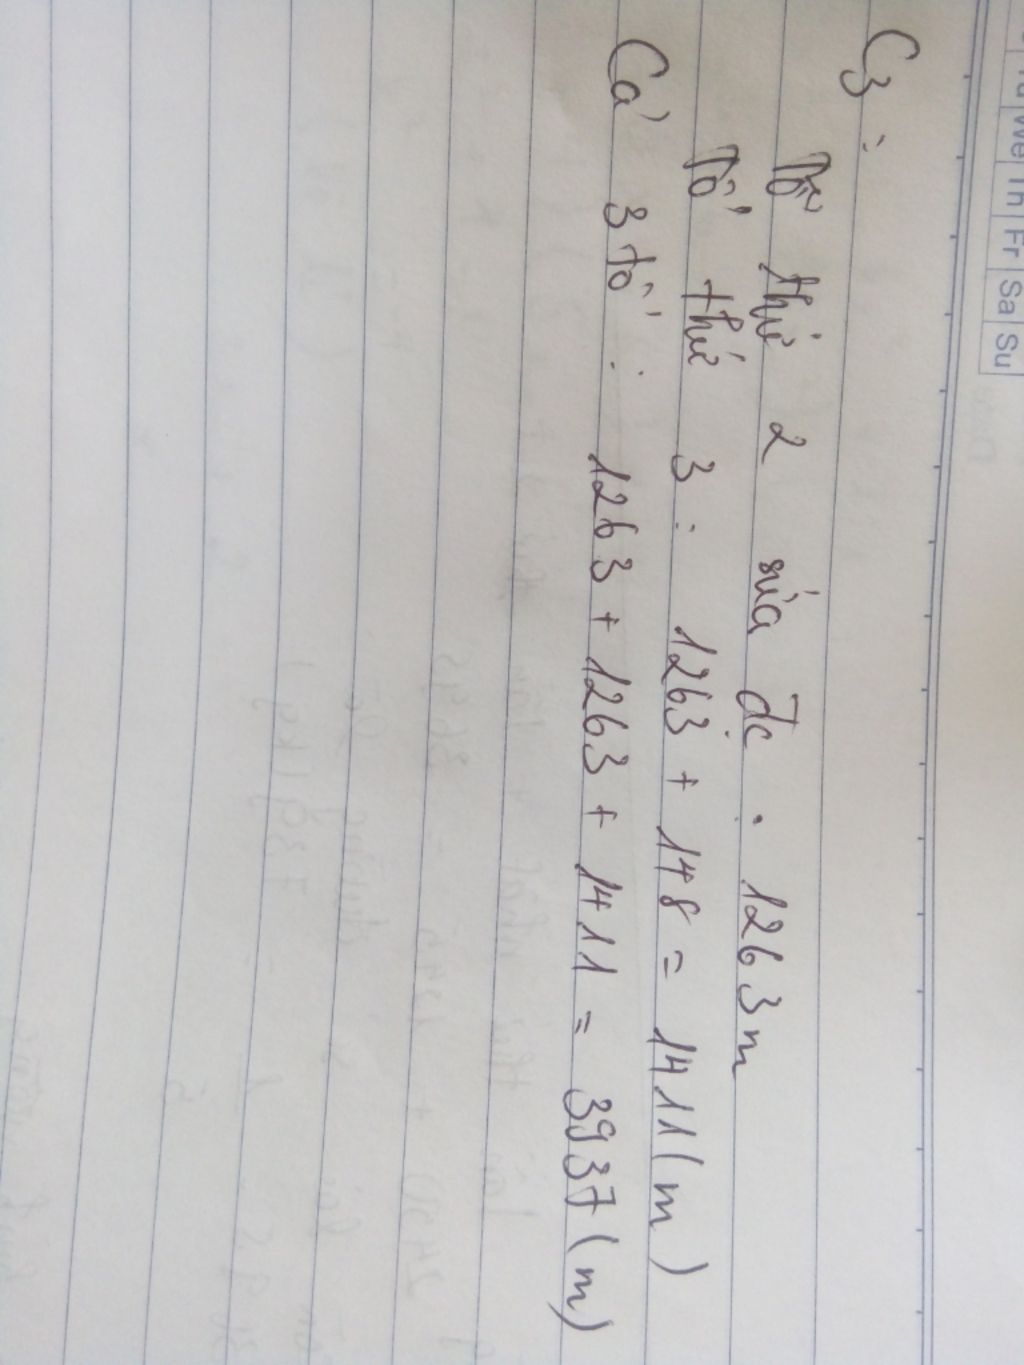 Tu We Th Fr Sa Su
C3:
Tổ thứ 2 sửa đc : 1263m
Tổ thứ 3 : 1263 + 148 = 1411 (m)
Cả 3 tổ : 1263 + 1263 + 1411 = 3937 (m)